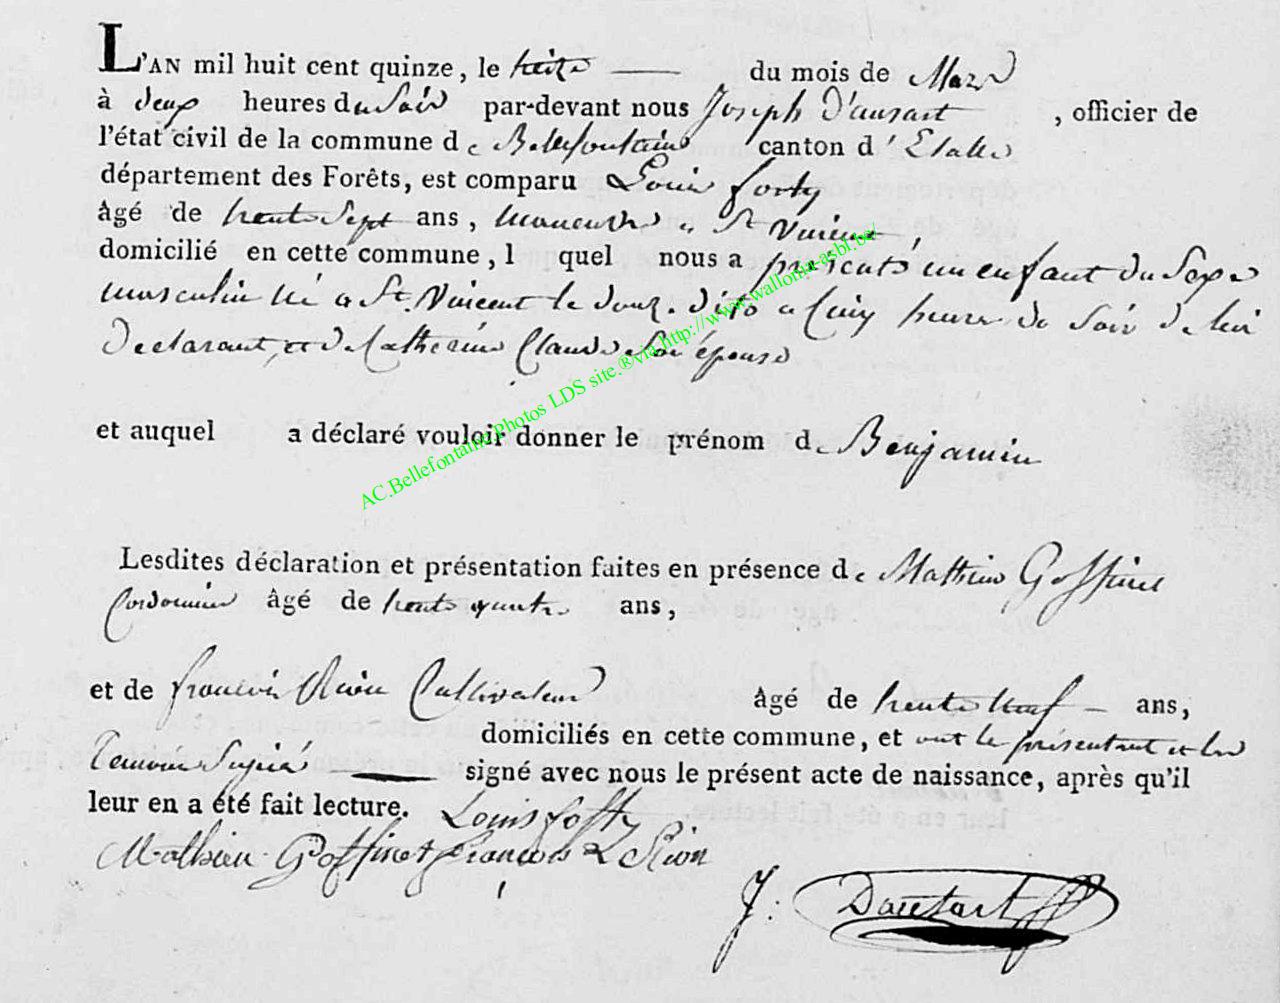 L'AN mil huit cent quinze, le treize du mois de Mars
à deux heures du Soir par-devant nous Joseph D'ausart, officier de
l'état civil de la commune de Bellefontaine canton d'Etalle
département des Forêts, est comparu Louis forty
âgé de trente Sept ans, manœuvre a St Vincent,
domicilié en cette commune, lequel nous a presenté un enfant du Sexe
masculin né a St. Vincent le douze dito a Cinq heures du Soir de lui
Declarant, et de Catherine Claude Son épouse
et auquel a déclaré vouloir donner le prénom de Benjamin
Lesdites déclaration et présentation faites en présence de Mathieu Goffinet
Cordonnier âgé de trente quatre ans,
et de françois Cultivateur âgé de trente Neuf ans,
domiciliés en cette commune, et ont le présentant et les
Temoins signé avec nous le présent acte de naissance, après qu'il
leur en a été fait lecture. Louis
Mathieu Goffinet françois Rion
J: Dautart
AC.Bellefontaine.Photos LDS site.®via.http://www.wallonia-asbl.be/